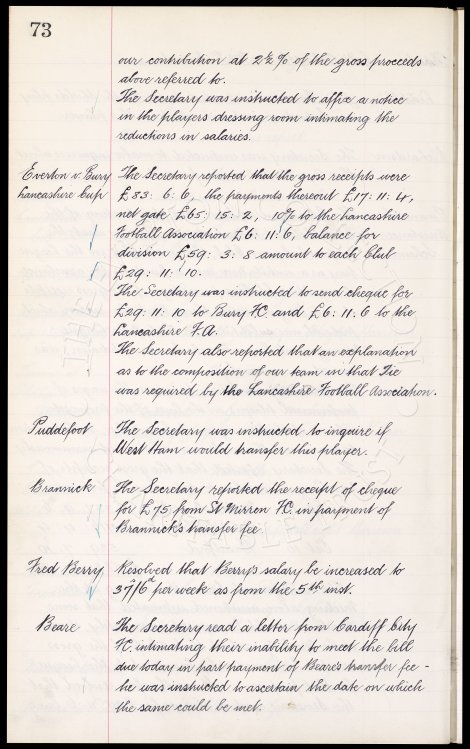 73
our contribution at 2½% of the gross proceeds
above referred to.
The Secretary was instructed to affix a notice
in the players dressing room intimating the
reductions in salaries.
Everton v. Bury The Secretary reported that the gross receipts were
Lancashire Cup £83: 6: 6, the payments thereout £17: 11: 4,
net gate £65: 15: 2, 10% to the Lancashire
Football Association £6: 11: 6, balance for
division £59: 3: 8 amount to each Club
£29: 11: 10.
The Secretary was instructed to send cheque for
£29: 11: 10 to Bury FC and £6: 11: 6 to the
Lancashire F.A.
The Secretary also reported that an explanation
as to the composition of our team in that Tie
was required by the Lancashire Football Association.
Puddefoot The Secretary was instructed to inquire if
West Ham would transfer this player.
Brannick The Secretary reported the receipt of cheque
for £75 from St Mirren FC. in payment of
Brannick's transfer fee
Fred Berry Resolved that Berry's salary be increased to
37/6d per week as from the 5th inst.
Beare The Secretary read a letter from Cardiff City
FC intimating their inability to meet the bill
due today in part payment of Beare's transfer fee -
he was instructed to ascertain the date on which
the same could be met.